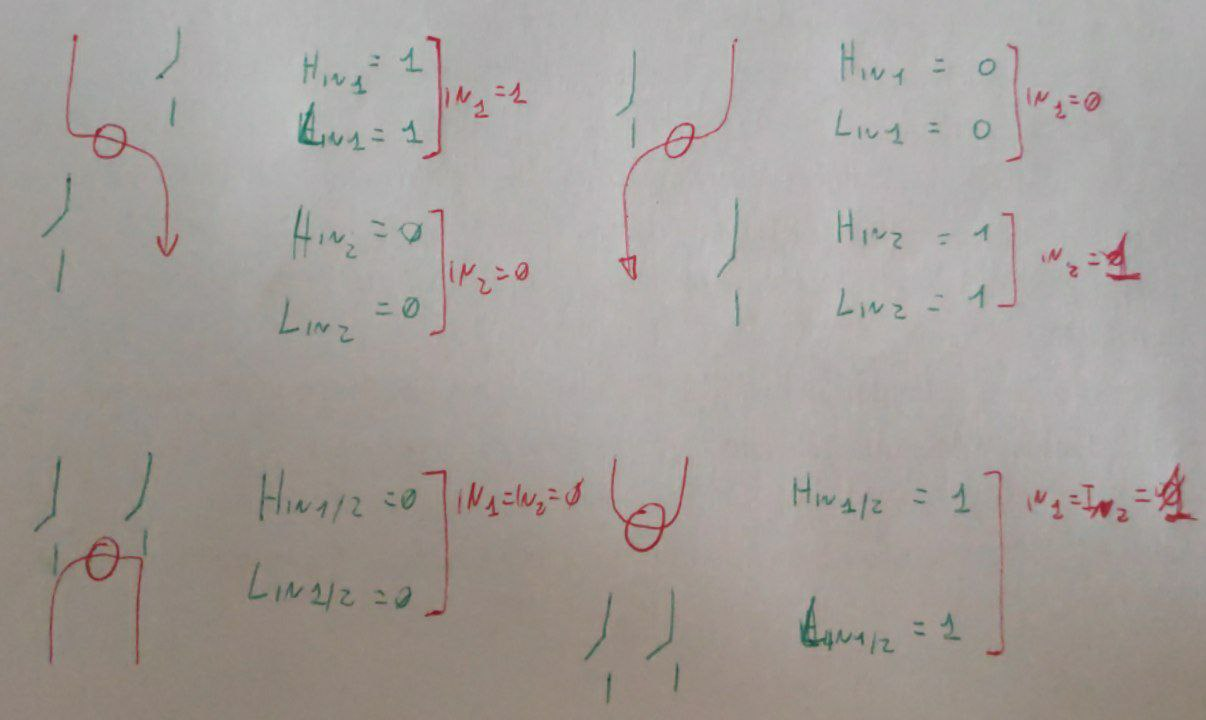 HIN1 = 1
LIN1 = 1
IN1=1
HIN2 = 0
LIN2 = 0
IN2=0
HIN1 = 0
LIN1 = 0
IN1=0
HIN2 = 1
LIN2 = 1
IN2=1
HIN1/2 =0
LIN1/2 =0
IN1=IN2=0
HIN1/2 = 1
LIN1/2 = 1
IN1=IN2=1